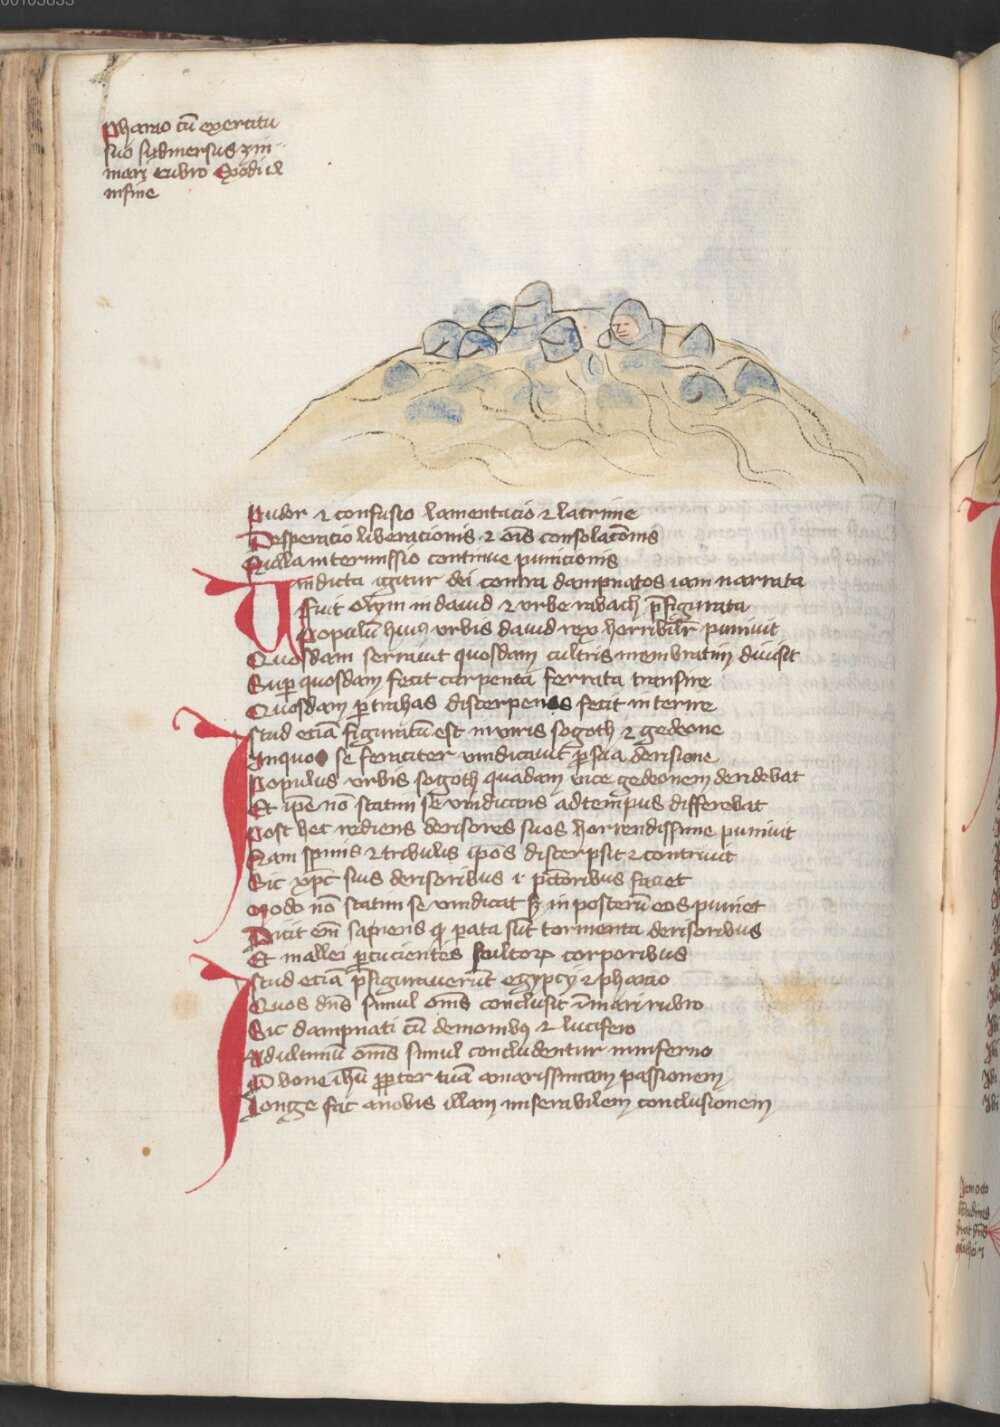 00103855
Pharao cū exercitu
suo submersus ē in
mari rubro Exodi ul
in fine
Pudor ⁊ confusio lamentacio ⁊ lacrime
Desperacio liberacionis ⁊ oīs consolacōnis
Nulla intermissio continue punicionis
Uindicta igitur dei contra dampnatos iam narrata
Fuit olym in dauid ⁊ urbe rabach p̄figurata
Populū huiꝰ urbis dauid rex horribilr̄ puniuit
Quosdam serrauit quosdam cultris membratim diuisit
Suꝑ quosdam fecit carpenta ferrata transire
Quosdam ꝑ trahas discerpens fecit interire
Istud eciā figuratū est in viris sogoth ⁊ gedeone
In quos se feraciter vindicauit ꝓ sua derisione
Populus urbis sogoth quadam vice gedeonem deridebat
Et ip̄e nō statim se vindicans ad tempus differebat
Post hec rediens derisores suos horrendissime puniuit
Nam spinis ⁊ tribulis ip̄os discerpsit ⁊ contriuit
Sic xp̄c suis derisoribus .i. pctōribus faciet
Modo nō statim se vindicat sꝫ in posterū eos puniet
Dicit em̄ sapiens ꝙ parata sūt tormenta derisoribus
Et mallei ꝑcucientes stultoꝝ corporibus
Istud eciā p̄figurauerūt egypcij ⁊ pharao
Quos dn̄s simul om̄s conclusit ī mari rubro
Sic dampnati cū demonibꝰ ⁊ lucifero
Ad ultimū om̄s simul concludentur in inferno
O bone ih̄u ꝓpter tuā amarissimam passionem
Longe fac a nobis illam miserabilem conclusionem